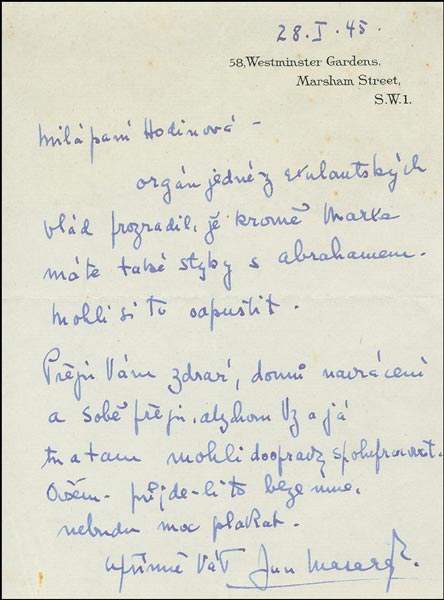 28.I.45.
58, Westminster Gardens,
Marsham Street,
S.W.1.
Milá paní Hodinová –
orgán jedné z exulantských
vlád prozradil, že kromě Marxa
máte také styky s abrahamem.
Mohli si to odpustit.
Přeji Vám zdraví, domů navrácení
a sobě přeji, abychom Vy a já
tu a tam mohli doopravdy spolupracovat.
Ovšem – půjde-li to beze mne,
nebudu moc plakat.
upřímně Váš Jan Masaryk.